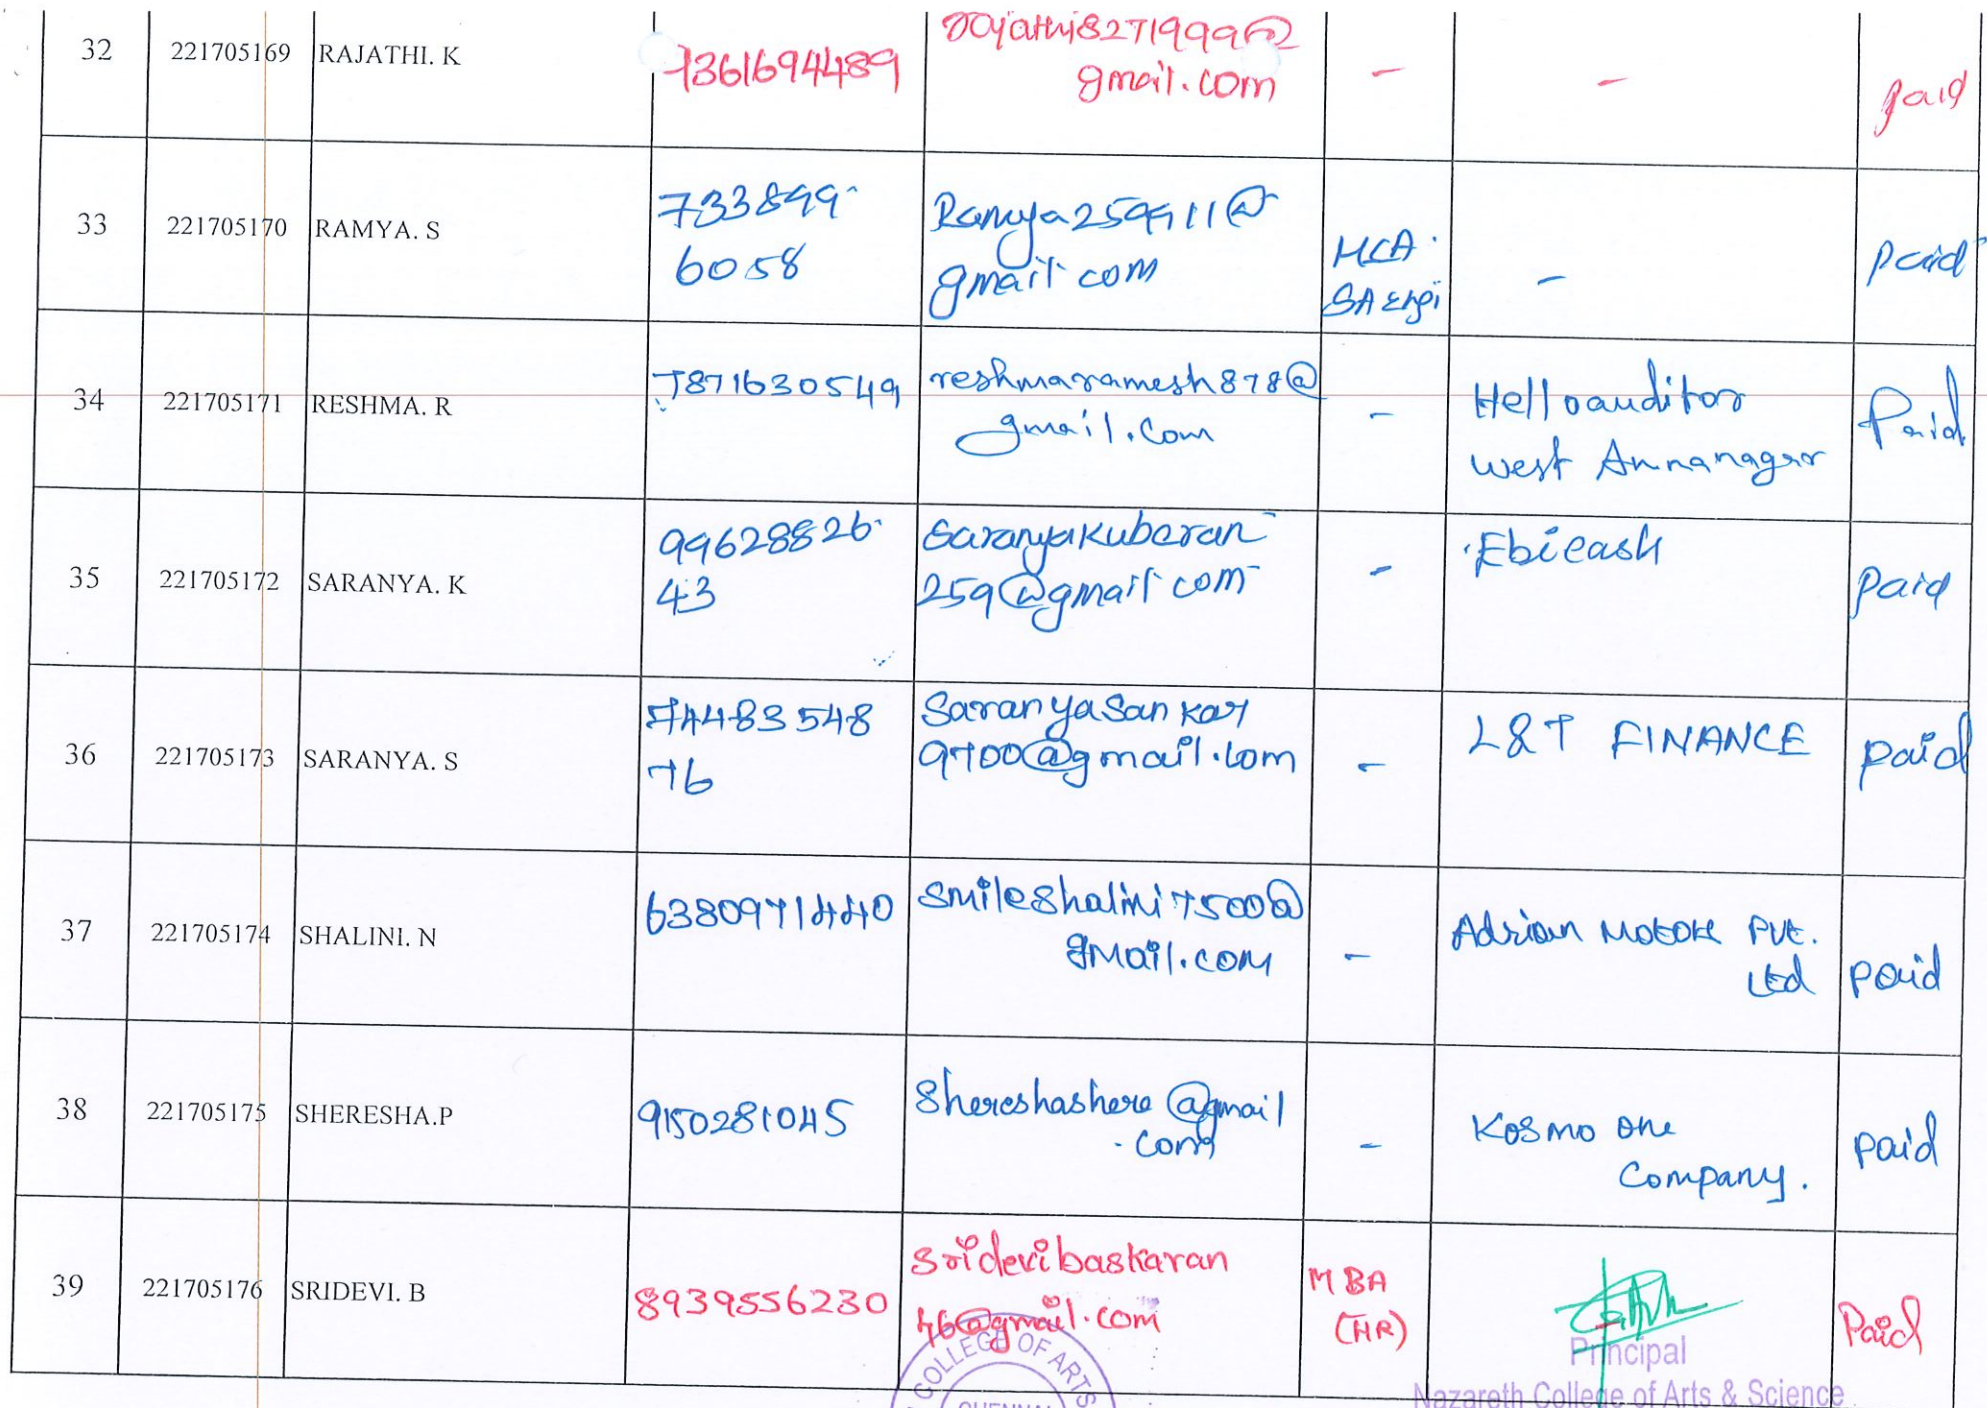 32 221705169 RAJATHI. K 7361694489 rajathi8271999@
gmail.com - - paid
33 221705170 RAMYA. S 733899-
6058 Ramya259911@
gmail com MCA.
SA Engi - paid
34 221705171 RESHMA. R 7871630549 reshmaramesh878@
gmail.com - Helloauditor
West Annanagar Paid
35 221705172 SARANYA. K 99628826-
43 Saranyakuberan-
259@gmail com - Ebicash paid
36 221705173 SARANYA. S 74483548
76 Saranyasankar
9700@gmail.com - L&T FINANCE paid
37 221705174 SHALINI. N 6380971440 Smileshalini7500@
gmail.com - Adrian Motors Pvt.
Ltd paid
38 221705175 SHERESHA.P 9150281045 Shereshashere@gmail
.com - Kosmo one
Company. paid
39 221705176 SRIDEVI. B 8939556230 sridevibaskaran
46@gmail.com MBA
(HR) Paid
COLLEGE OF ARTS
CHENNAI
Principal
Nazareth College of Arts & Science